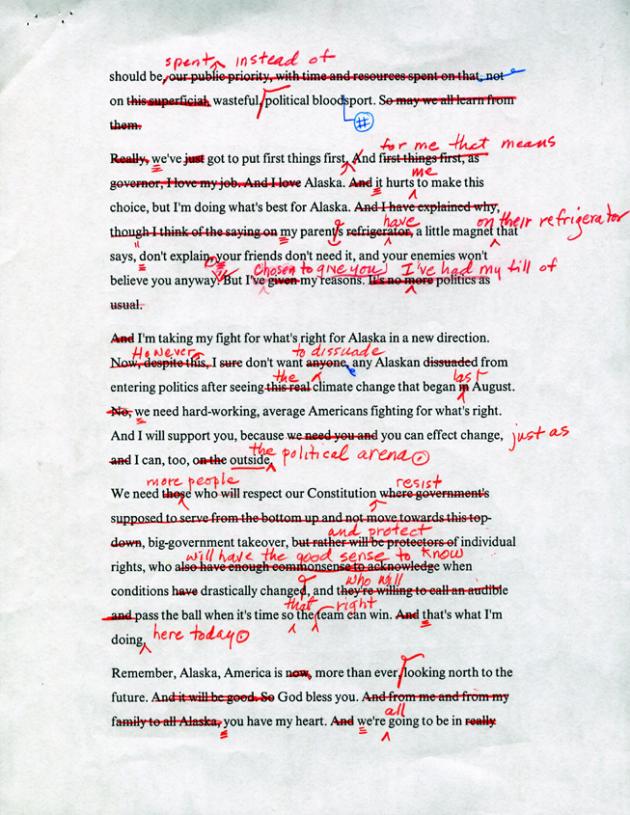 spent instead of
should be, our public priority, with time and resources spent on that, not
on this superficial, wasteful, political bloodsport. So may we all learn from
#
them.
for me that means
Really, we've just got to put first things first. And first things first, as
me
governor, I love my job. And I love Alaska. And it hurts to make this
choice, but I'm doing what's best for Alaska. And I have explained why,
have on their refrigerator
though I think of the saying on my parent's refrigerator, a little magnet that
says, "don't explain, your friends don't need it, and your enemies won't
chosen to give you I've had my fill of
believe you anyway." But I've given my reasons. It's no more politics as
usual.
And I'm taking my fight for what's right for Alaska in a new direction.
However, to dissuade
Now, despite this, I sure don't want anyone, any Alaskan dissuaded from
the last
entering politics after seeing this real climate change that began in August.
No, we need hard-working, average Americans fighting for what's right.
And I will support you, because we need you and you can effect change, just as
the political arena.
and I can, too, on the outside.
more people resist
We need those who will respect our Constitution where government's
supposed to serve from the bottom up and not move towards this top-
and protect
down, big-government takeover, but rather will be protectors of individual
will have the good sense to know
rights, who also have enough commonsense to acknowledge when
who will
conditions have drastically changed, and they're willing to call an audible
that right
and pass the ball when it's time so the team can win. And that's what I'm
doing, here today.
Remember, Alaska, America is now, more than ever, looking north to the
future. And it will be good. So God bless you. And from me and from my
all
family to all Alaska, you have my heart. And we're going to be in really